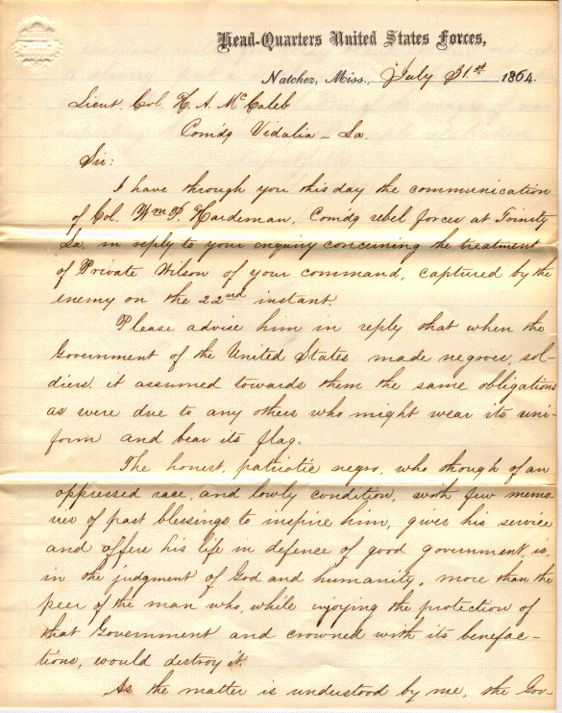 Head-Quarters United States Forces,
Natchez, Miss., July 31st 1864.
Lieut. Col. H. A. McCaleb
Comdg Vidalia - La.
Sir:
I have through you this day the communication
of Col. Wm P. Hardeman, Comdg rebel forces at Trinity
La. in reply to your enquiry concerning the treatment
of Private Wilson of your command, captured by the
enemy on the 22nd instant.
Please advise him in reply that when the
Government of the United States made negroes, sol-
diers, it assumed towards them the same obligations
as were due to any others who might wear its uni-
form and bear its flag.
The honest, patriotic negro, who though of an
oppressed race, and lowly condition, with few memo-
ries of past blessings to inspire him, gives his service
and offers his life in defence of good government, is,
in the judgment of God and humanity, more than the
peer of the man who, while enjoying the protection of
that Government and crowned with its benefac-
tions, would destroy it.
As the matter is understood by me, the Gov-